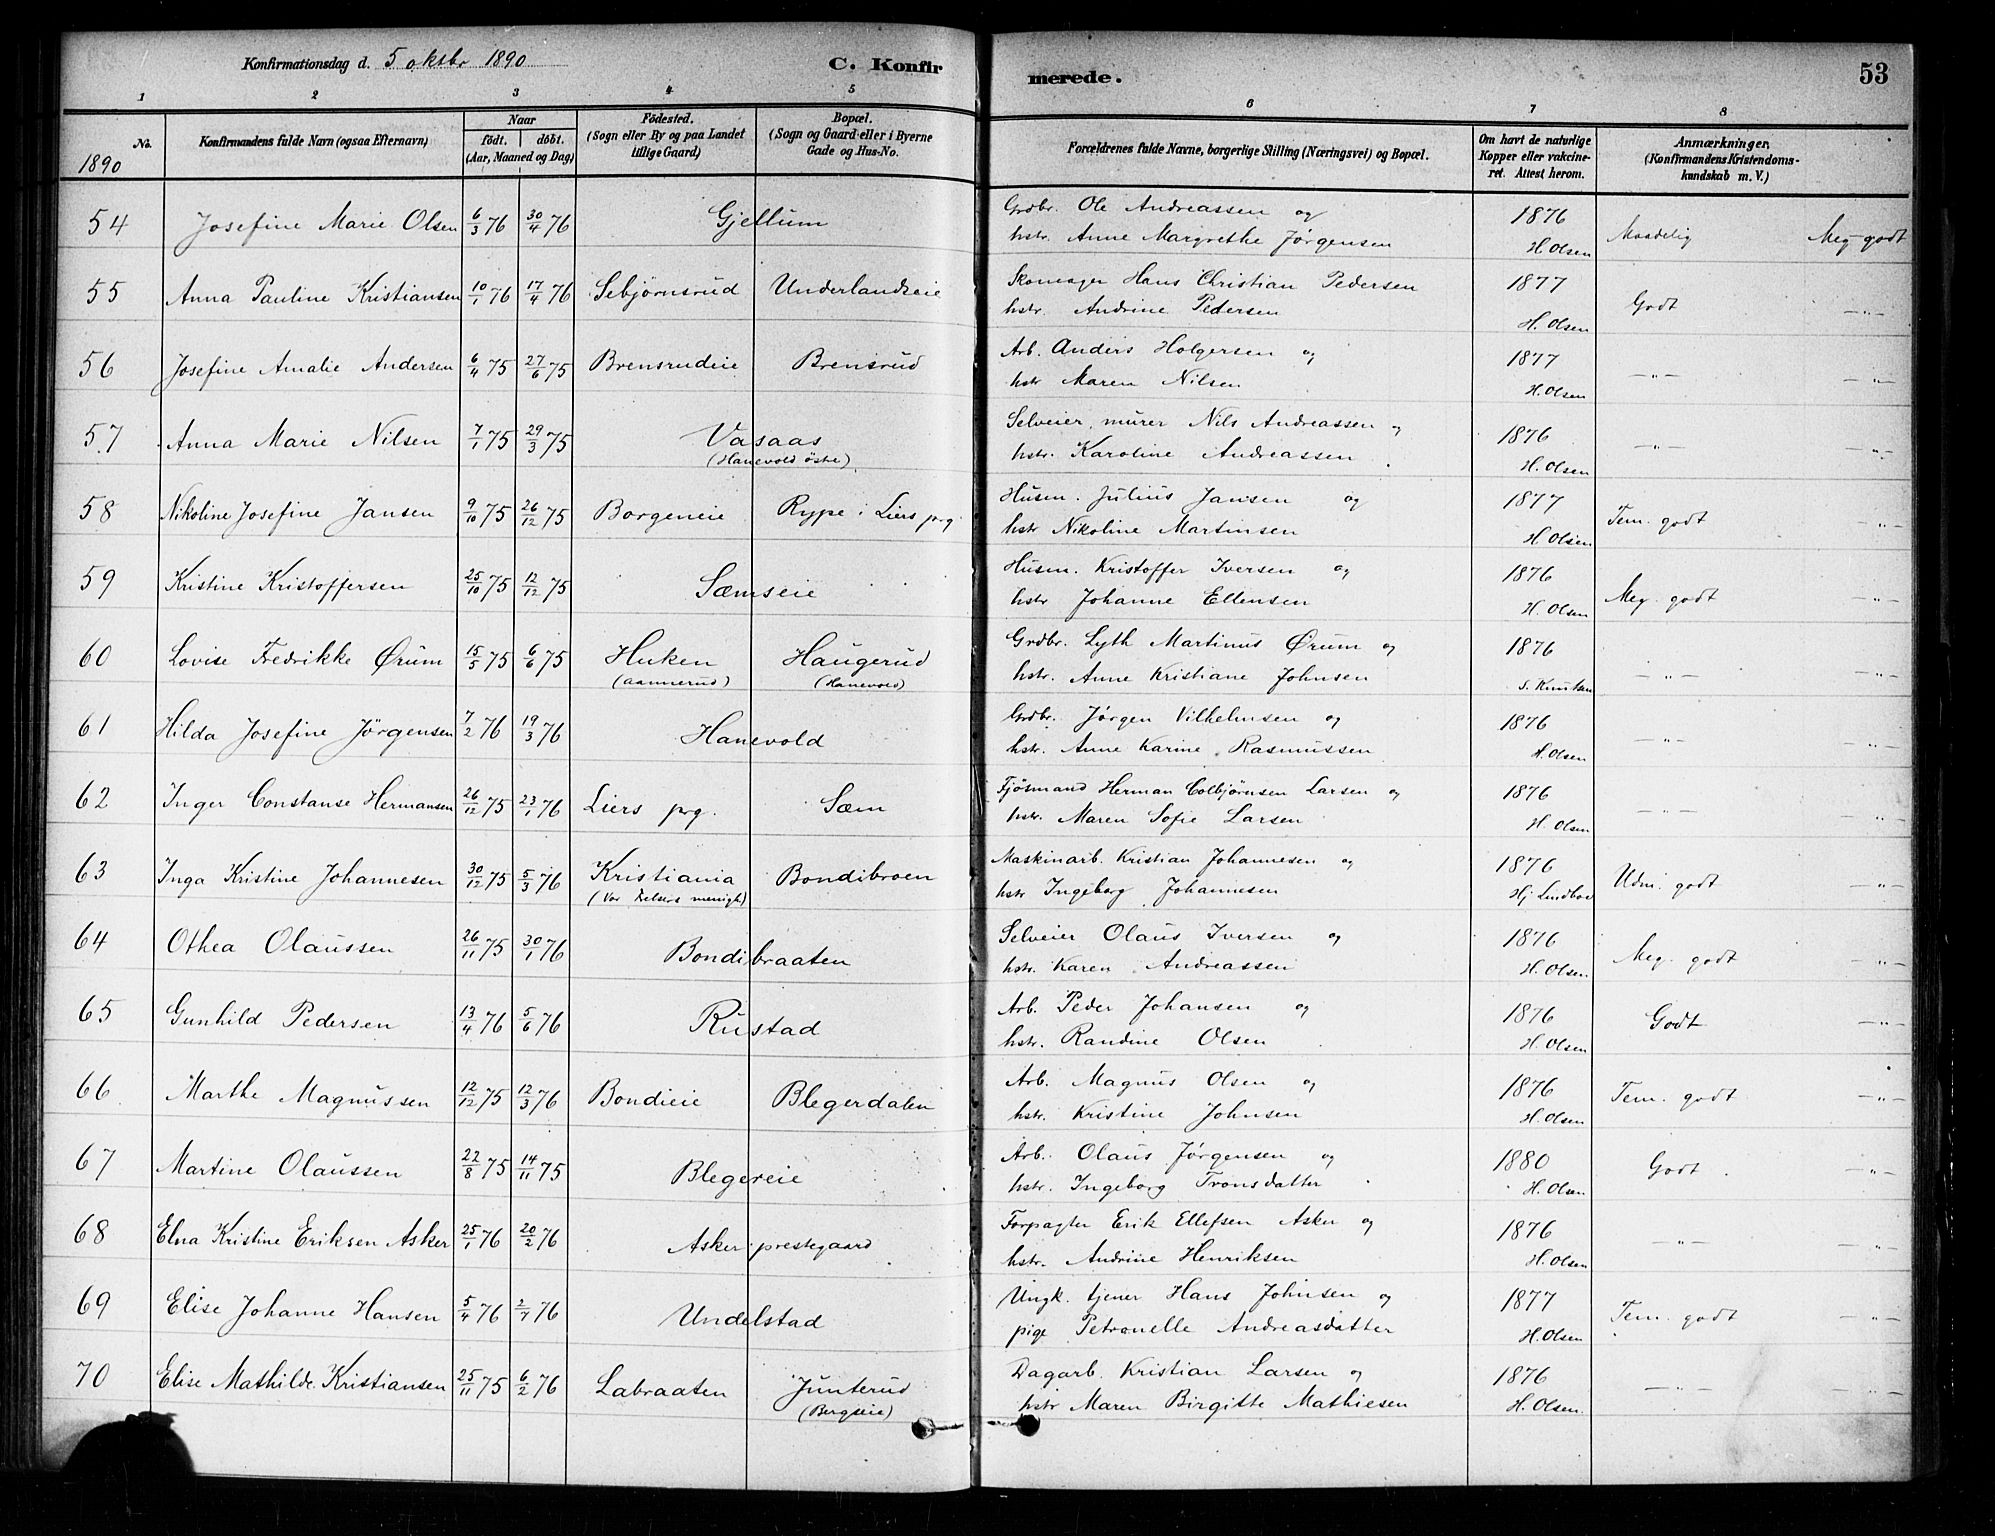 Konfirmationsdag d. 5 oktbr 1890
C. Konfir
merede.
53
1 2 3 4 5 6 7 8
No. 1890
Konfirmandens fulde Navn (ogsaa Efternavn)
Naar
födt. döbt.
(Aar, Maaned og Dag)
Födested.
(Sogn eller By og paa Landet
tillige Gaard)
Bopæl.
(Sogn og Gaard eller i Byerne
Gade og Hus-No.
Forældrenes fulde Navne, borgerlige Stilling (Næringsvei) og Bopæl.
Om havt de naturlige
Kopper eller vakcine-
ret. Attest herom.
Anmærkninger,
(Konfirmandens Kristendoms-
kundskab m. V.)
54 Josefine Marie Olsen 6/3 76 30/4 76 Gjellum Grdbr. Ole Andreassen og 1876 Maadelig Meg godt
hstr. Anne Margrethe Jørgensen H. Olsen
55 Anna Pauline Kristiansen 10/1 76 17/4 76 Sebjørnsrud Underlandseie Skomager Hans Christian Pedersen 1877 Godt —"—
hstr. Andrine Pedersen H. Olsen
56 Josefine Amalie Andersen 6/4 75 27/6 75 Brensrudeie Brensrud Arb. Anders Holgersen og 1877 —"— —"—
hstr Maren Nilsen H. Olsen
57. Anna Marie Nilsen 7/1 75 29/3 75 Vasaas Selveier, murer Nils Andreassen og 1876 —"— —"—
(Hanevold östre) hstr. Karoline Andreassen H. Olsen
58 Nikoline Josefine Jansen 9/10 75 26/12 75 Borgeneie Rype i Liers prg. Husm. Julius Jansen og 1877 Tem. godt —"—
hstr Nikoline Martinsen H. Olsen
59 Kristine Kristoffersen 25/10 75 12/12 75 Sæmseie Husm. Kristoffer Iversen og 1876 Meg. godt —"—
hstr Johanne Ellensen H. Olsen
60 Lovise Fredrikke Ørum 15/5 75 6/6 75 Huken Haugerud Grdbr. Lyth Martinus Ørum og 1876 —"— —"—
(Aannerud) (Hanevold) hstr. Anne Kristiane Johnsen S. Knutsen
61 Hilda Josefine Jörgensen 7/2 76 19/3 76 Hanevold Grdbr. Jörgen Vilhelmsen og 1876 —"— —"—
hstr. Anne Karine Rasmussen H. Olsen
62 Inger Constanse Hermansen 26/12 75 23/1 76 Liers prg. Sæm Fjösmand Herman Colbjørnsen Larsen og 1876 —"— —"—
hstr. Maren Sofie Larsen H. Olsen
63 Inga Kristine Johannesen 30/12 75 5/3 76 Kristiania Bondibroen Maskinarb. Kristian Johannesen og 1876 Udm. godt —"—
(Vor Frelsers menigh) hstr Ingeborg Johannesen Hj. Lindboe
64 Othea Olaussen 26/11 75 30/1 76 Bondibraaten Selveier Olaus Iversen og 1876 Meg. godt —"—
hstr. Karen Andreassen H. Olsen
65 Gunhild Pedersen 13/4 76 5/6 76 Rustad Arb. Peder Johansen og 1876 Godt —"—
hstr. Randine Olsen H. Olsen
66 Marthe Magnussen 12/12 75 12/3 76 Bondieie Blegerdalen Arb. Magnus Olsen og 1876 Tem. godt —"—
hstr. Kristine Johnsen H. Olsen
67 Martine Olaussen 22/8 75 14/11 75 Blegereie Arb. Olaus Jørgensen og 1880 Godt —"—
hstr. Ingeborg Tronsdatter H. Olsen
68 Elna Kristine Eriksen Asker 25/1 76 20/2 76 Asker prestegaard Forpagter Erik Ellefsen Asker og 1876 —"— —"—
hstr. Andrine Henriksen H. Olsen
69 Elise Johanne Hansen 5/4 76 2/7 76 Undelstad Ungk. tjener Hans Johnsen og 1877 Tem. godt —"—
pige Petronelle Andreasdatter H. Olsen
70 Elise Mathilde Kristiansen 25/11 75 6/2 76 Labraaten Junterud Dagarb. Kristian Larsen og 1876 —"— —"—
(Bergseie) hstr Maren Birgitte Mathiesen H. Olsen.